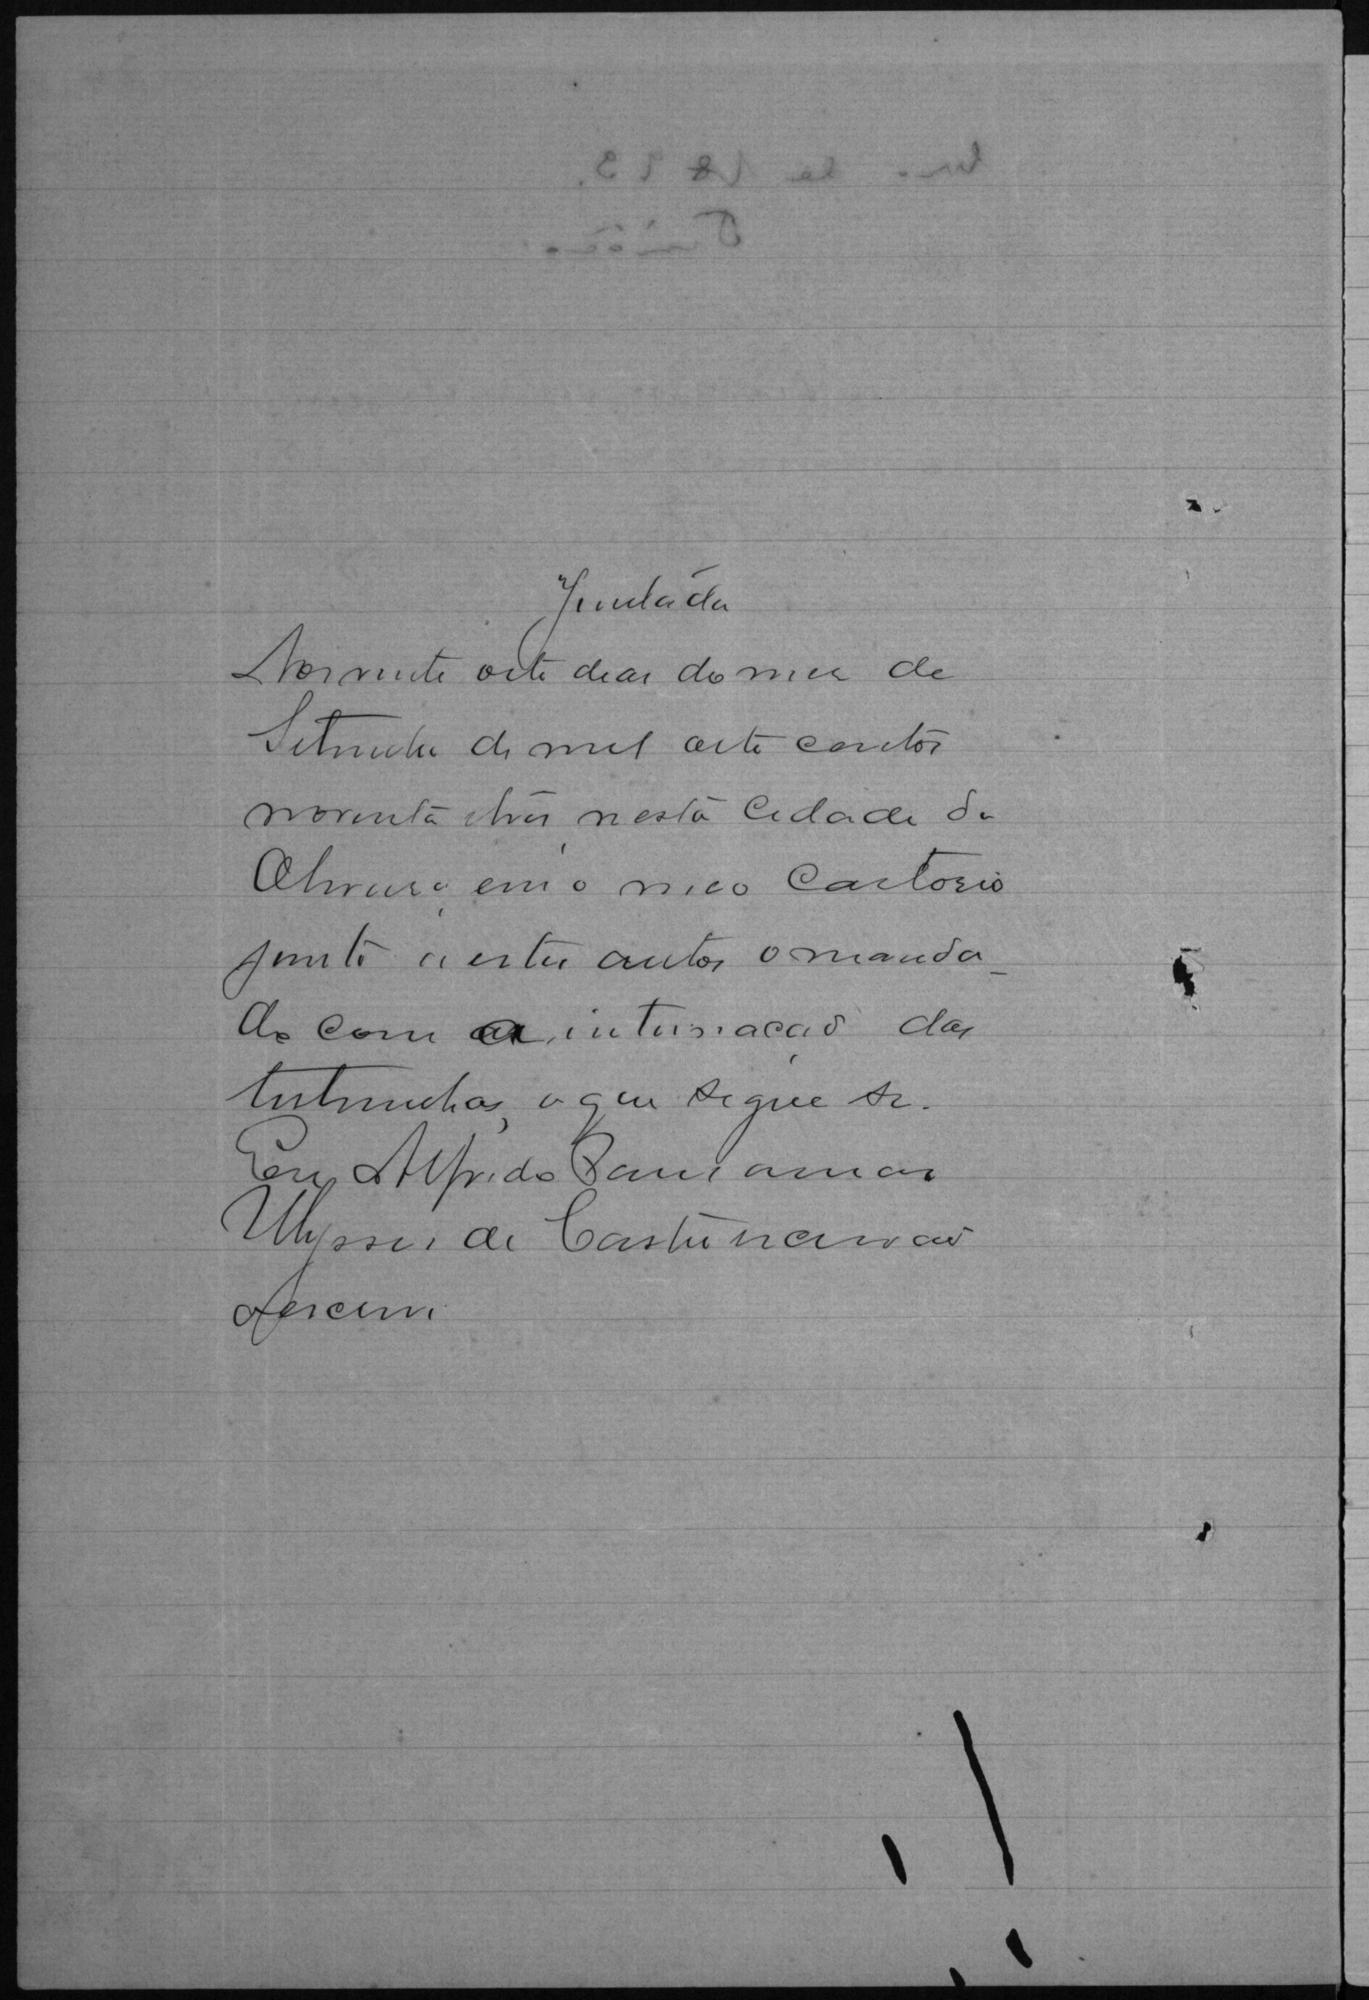 Juntáda
Aos vinte oito dias do mez de
Setembro de mil oito centos
noventa e tres nesta Cidade da
em o meo Cartorio
junto a estes autos o manda-
do com a intimação das
testemunhas, o que segue se.
Eu Alfrêdo
Ulysses de
Escrevi